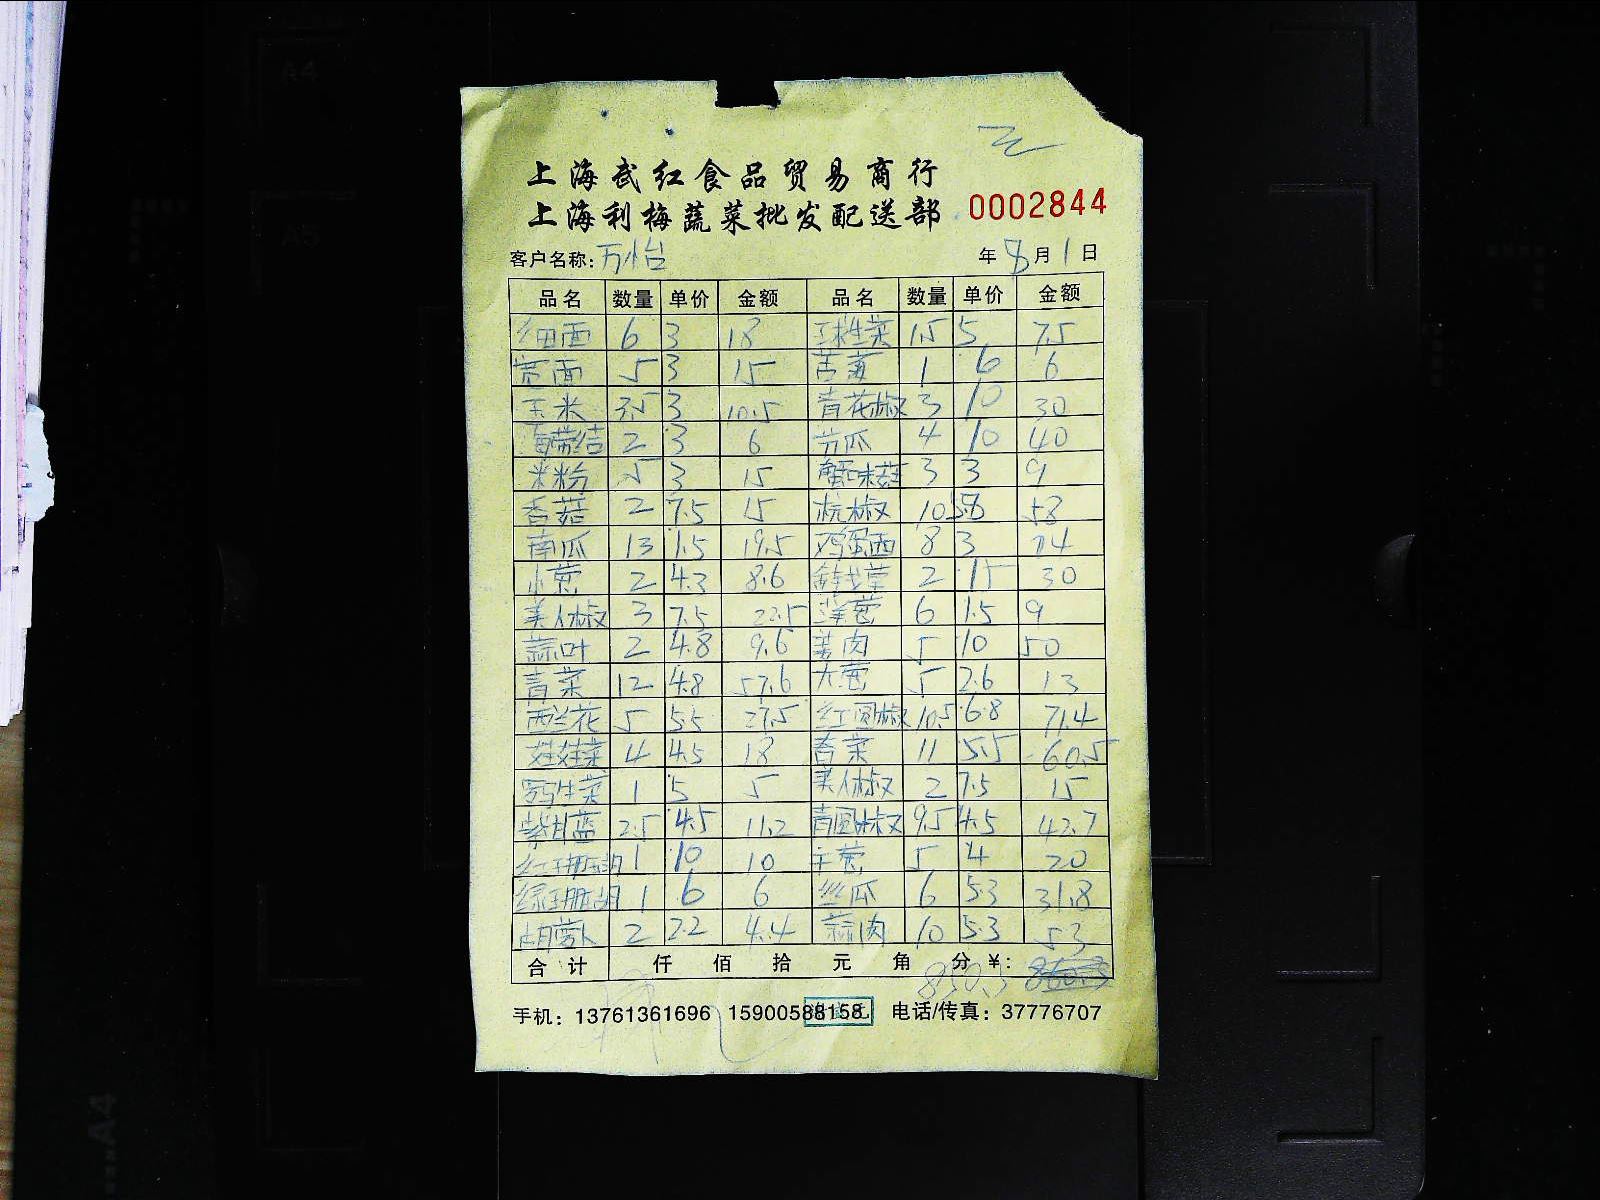 上海武红食品贸易商行
上海利梅蔬菜批发配送部
0002844
客户名称：万怡 年 8 月 1 日
品名 数量 单价 金额 品名 数量 单价 金额
细面 6 3 18 球生菜 1.5 5 7.5
宽面 5 3 15 苦菊 1 6 6
玉米 3.5 3 10.5 青花椒 3 10 30
海带结 2 3 6 节瓜 4 10 40
米粉 5 3 15 蟹味菇 3 3 9
香菇 2 7.5 15 杭椒 10 5.8 58
南瓜 13 1.5 19.5 鸡蛋面 8 3 24
小葱 2 4.3 8.6 2 15 30
美人椒 3 7.5 22.5 洋葱 6 1.5 9
蒜叶 2 4.8 9.6 姜肉 5 10 50
青菜 12 4.8 57.6 大葱 5 2.6 13
西兰花 5 5.5 27.5 红圆椒 10.5 6.8 71.4
娃娃菜 4 4.5 18 香菜 11 5.5 60.5
罗马生菜 1 5 5 美人椒 2 7.5 15
紫甘蓝 2.5 4.5 11.2 青圆椒 9.5 4.5 42.7
红珊瑚 1 10 10 京葱 5 4 20
绿珊瑚 1 6 6 丝瓜 6 5.3 31.8
胡萝卜 2 2.2 4.4 蒜肉 10 5.3 53
合计 仟 佰 拾 元 角 分 ¥：
850.3
手机：13761361696 15900588158 电话/传真：37776707